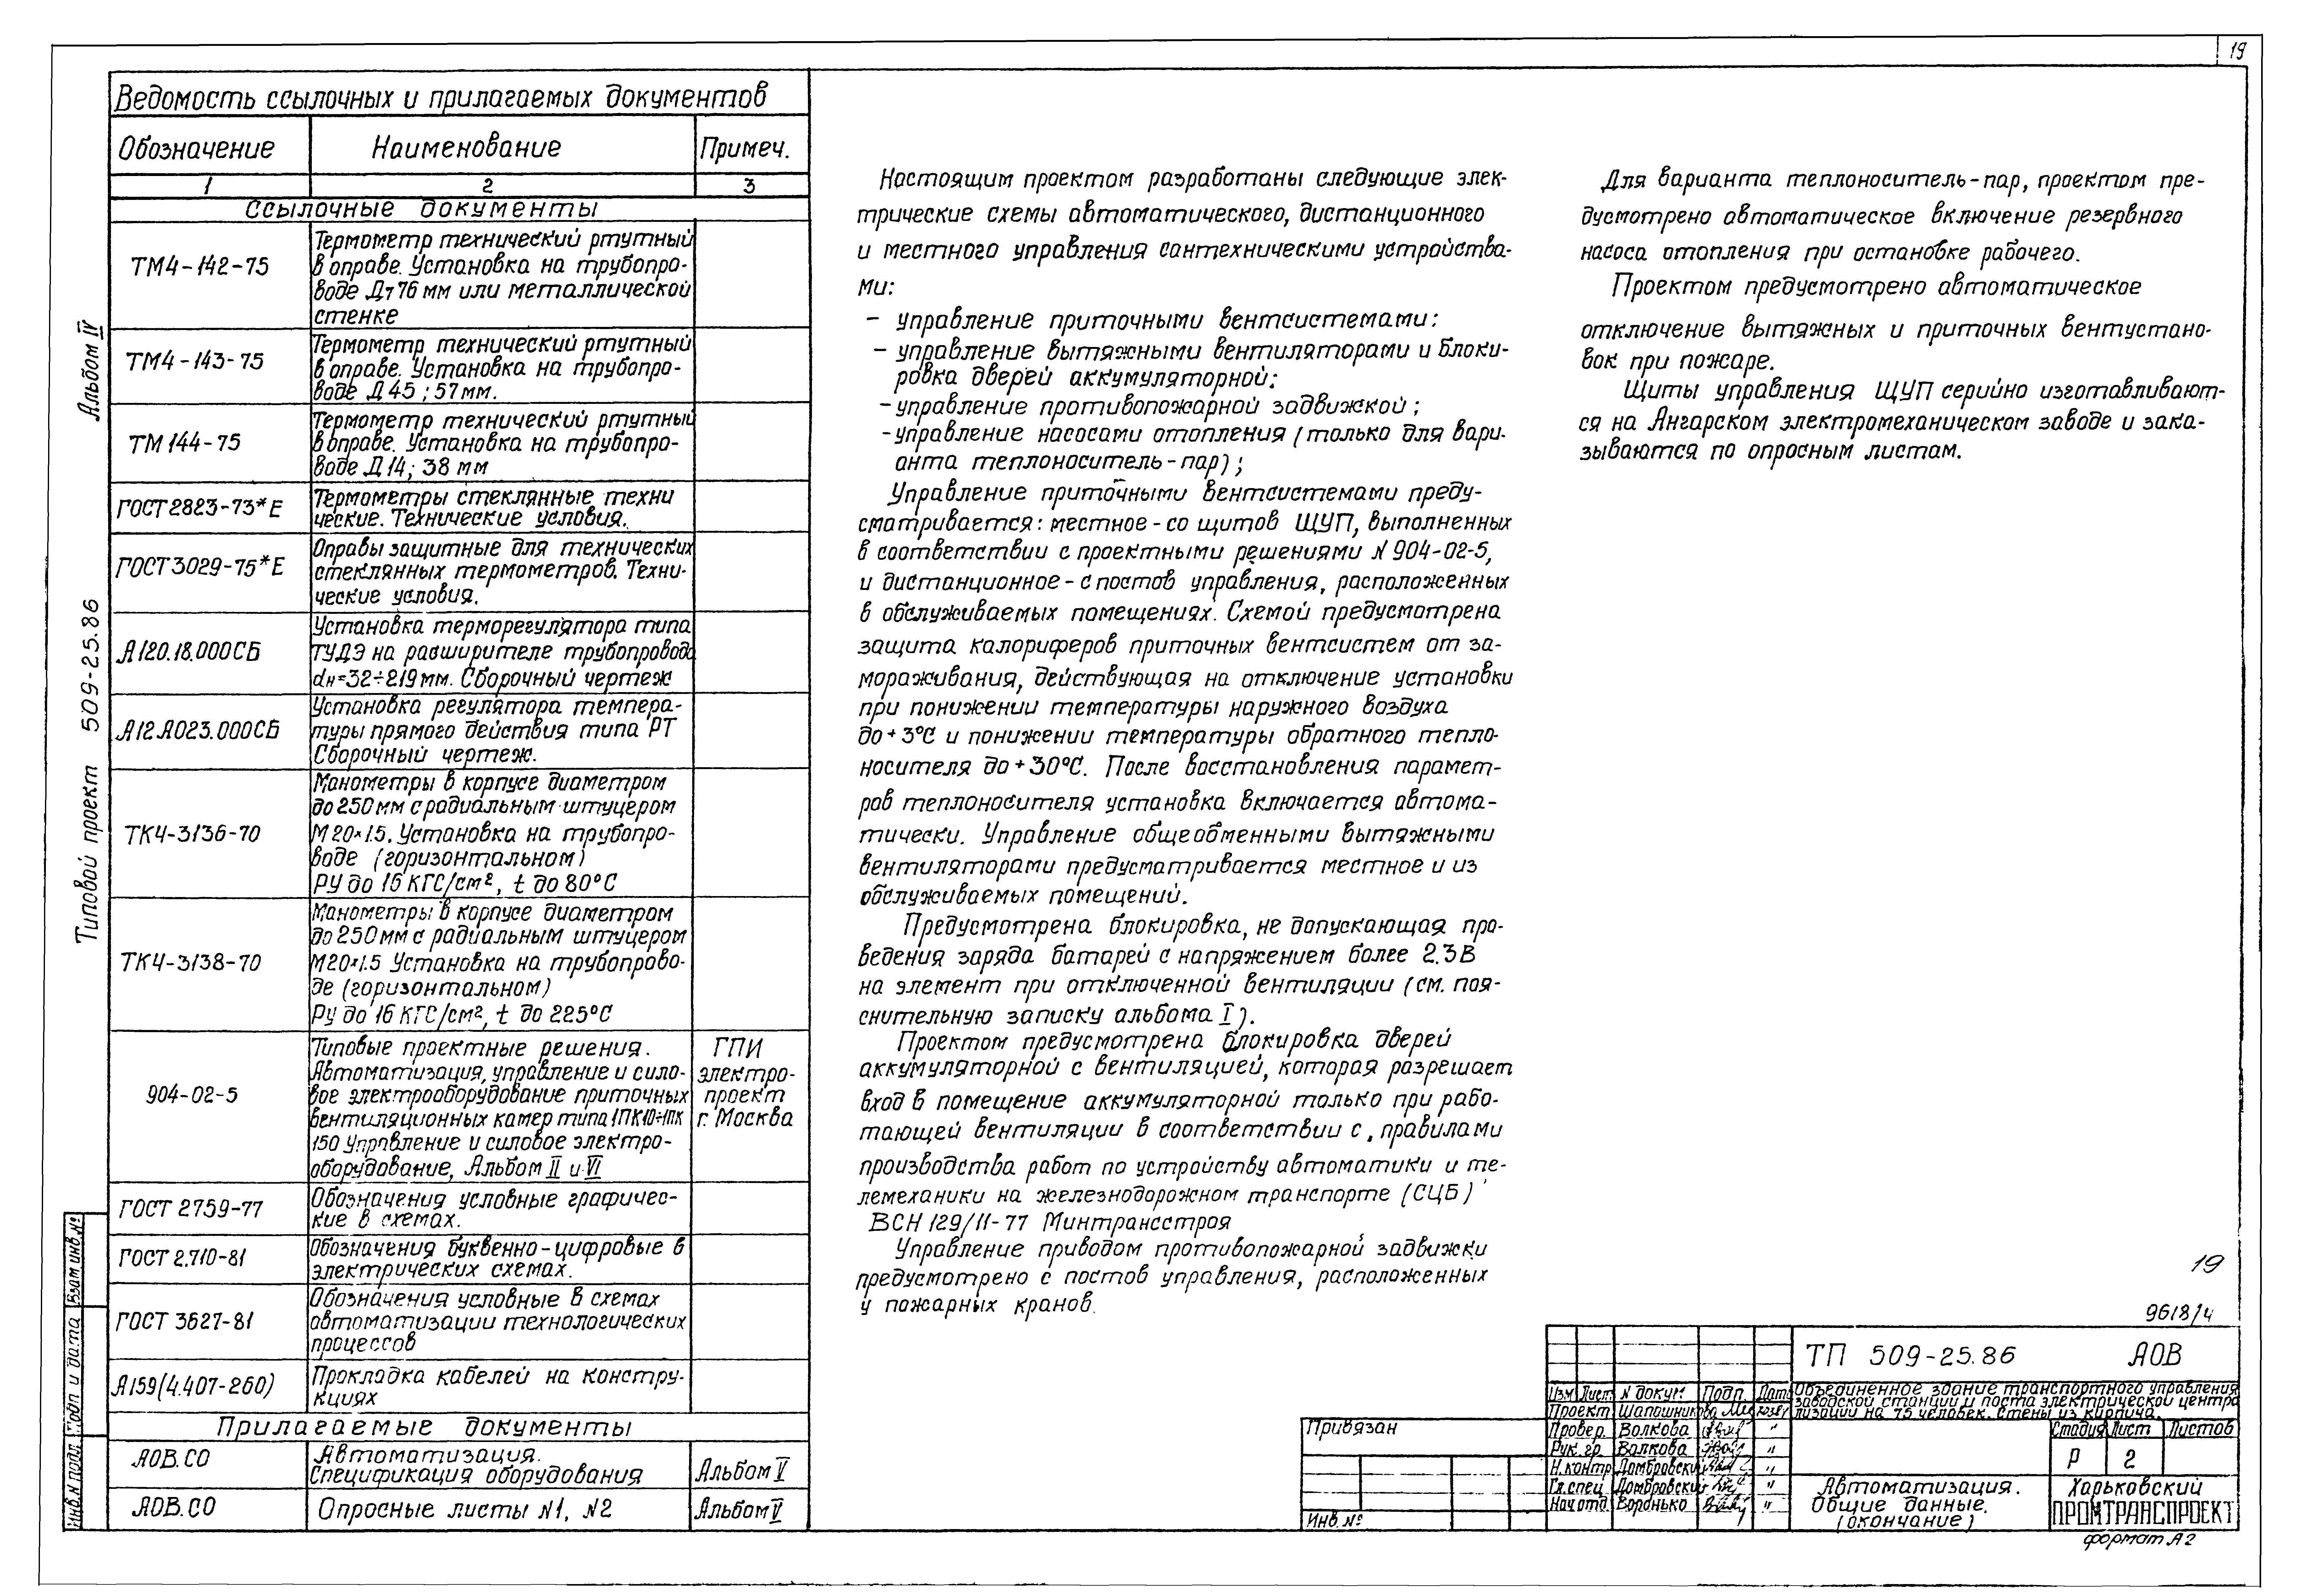 19
Ведомость ссылочных и прилагаемых документов
Обозначение Наименование Примеч.
1 2 3
Ссылочные документы
ТМ4-142-75
Термометр технический ртутный
в оправе. Установка на трубопро-
воде Д 76 мм или металлической
стенке
ТМ4-143-75
Термометр технический ртутный
в оправе. Установка на трубопро-
воде Д 45; 57мм.
ТМ 144-75
Термометр технический ртутный
в оправе. Установка на трубопро-
воде Д 14; 38 мм
ГОСТ 2823-73*Е
Термометры стеклянные техни
ческие. Технические условия.
ГОСТ 3029-75*Е
Оправы защитные для технических
стеклянных термометров. Техни-
ческие условия.
А120.18.000СБ
Установка терморегулятора типа
ТУДЭ на расширителе трубопровода
dн=32÷219мм. Сборочный чертеж
А12А023.000СБ
Установка регулятора темпера-
туры прямого действия типа РТ
Сборочный чертеж.
ТК4-3136-70
Манометры в корпусе диаметром
до 250 мм с радиальным штуцером
М 20×1.5. Установка на трубопро-
воде (горизонтальном)
РУ до 16 КГС/см², t до 80°С
ТК4-3138-70
Манометры в корпусе диаметром
до 250 мм с радиальным штуцером
М20×1.5 Установка на трубопрово-
де (горизонтальном)
Ру до 16 КГС/см², t до 225°С
904-02-5
Типовые проектные решения.
Автоматизация, управление и сило-
вое электрооборудование приточных
вентиляционных камер типа 1ПК10÷1ПК
150 Управление и силовое электро-
оборудование, Альбом II и VI
ГПИ
электро-
проект
г. Москва
ГОСТ 2759-77
Обозначения условные графичес-
кие в схемах.
ГОСТ 2.710-81
Обозначения буквенно-цифровые в
электрических схемах.
ГОСТ 3627-81
Обозначения условные в схемах
автоматизации технологических
процессов
А159(4.407-260)
Прокладка кабелей на констру-
кциях
Прилагаемые документы
АОВ.СО
Автоматизация.
Спецификация оборудования
Альбом V
АОВ.СО
Опросные листы N1, N2
Альбом V
Альбом IV
Типовой проект 509-25.86
Взам инв.№
Подп и дата
Инв.N подл
Настоящим проектом разработаны следующие элек-
трические схемы автоматического, дистанционного
и местного управления сантехническими устройства-
ми:
- управление приточными вентсистемами:
- управление вытяжными вентиляторами и блоки-
ровка дверей аккумуляторной;
- управление противопожарной задвижкой;
- управление насосами отопления (только для вари-
анта теплоноситель-пар);
Управление приточными вентсистемами преду-
сматривается: местное-со щитов ЩУП, выполненных
в соответствии с проектными решениями N 904-02-5,
и дистанционное-с постов управления, расположенных
в обслуживаемых помещениях. Схемой предусмотрена
защита калориферов приточных вентсистем от за-
мораживания, действующая на отключение установки
при понижении температуры наружного воздуха
до +3°С и понижении температуры обратного тепло-
носителя до +30°С. После восстановления парамет-
ров теплоносителя установка включается автома-
тически. Управление общеобменными вытяжными
вентиляторами предусматривается местное и из
обслуживаемых помещений.
Предусмотрена блокировка, не допускающая про-
ведения заряда батарей с напряжением более 2.3В
на элемент при отключенной вентиляции (см. поя-
снительную записку альбома I).
Проектом предусмотрена блокировка дверей
аккумуляторной с вентиляцией, которая разрешает
вход в помещение аккумуляторной только при рабо-
тающей вентиляции в соответствии с „правилами
производства работ по устройству автоматики и те-
лемеханики на железнодорожном транспорте (СЦБ)"
ВСН 129/11-77 Минтрансстроя
Управление приводом противопожарной задвижки
предусмотрено с постов управления, расположенных
у пожарных кранов.
Для варианта теплоноситель-пар, проектом пре-
дусмотрено автоматическое включение резервного
насоса отопления при остановке рабочего.
Проектом предусмотрено автоматическое
отключение вытяжных и приточных вентустано-
вок при пожаре.
Щиты управления ЩУП серийно изготавливают-
ся на Ангарском электромеханическом заводе и зака-
зываются по опросным листам.
19
9618/4
ТП 509-25.86 АОВ
Изм Лист N докум Подп. Дата
Объединенное здание транспортного управления
заводской станции и поста электрической центра
лизации на 75 человек. Стены из кирпича.
Проект. Шапошникова
Провер. Волкова "
Рук. гр. Волкова "
Н.контр Домбровский "
Гл.спец Домбровский "
Нач отд. Воронько "
Стадия Лист Листов
Р 2
Автоматизация.
Общие данные.
(окончание)
Харьковский
ПРОМТРАНСПРОЕКТ
Привязан
Инв. №
формат А2